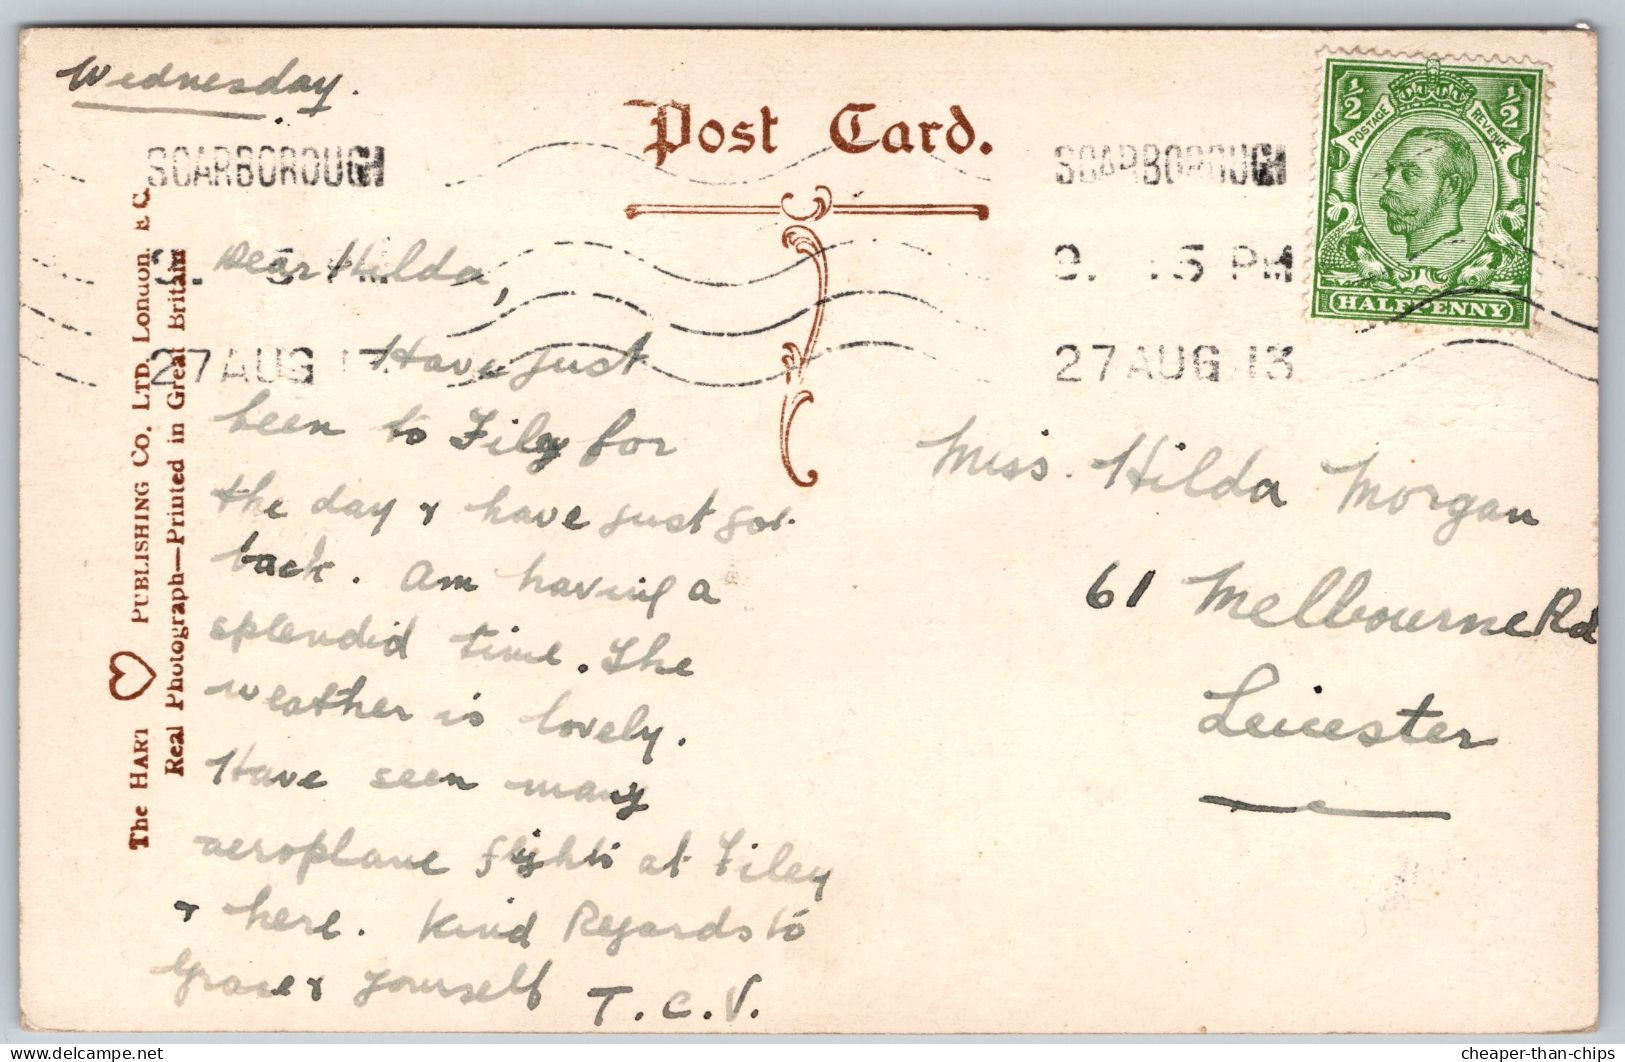 Wednesday.
Post Card.
SCARBOROUGH
SCARBOROUGH
5 PM
27 AUG 13
27 AUG 1
½ ½
POSTAGE REVENUE
HALFPENNY
The HART PUBLISHING CO. LTD. London. E C.
Real Photograph—Printed in Great Britain
Dear Hilda,
Have just
been to Filey for
the day & have just got
back. Am having a
splendid time. The
weather is lovely.
Have seen many
aeroplane flights at Filey
& here. Kind Regards to
Grace & yourself T.C.V.
Miss. Hilda Morgan
61 Melbourne Rd
Leicester
delcampe.net
cheaper-than-chips